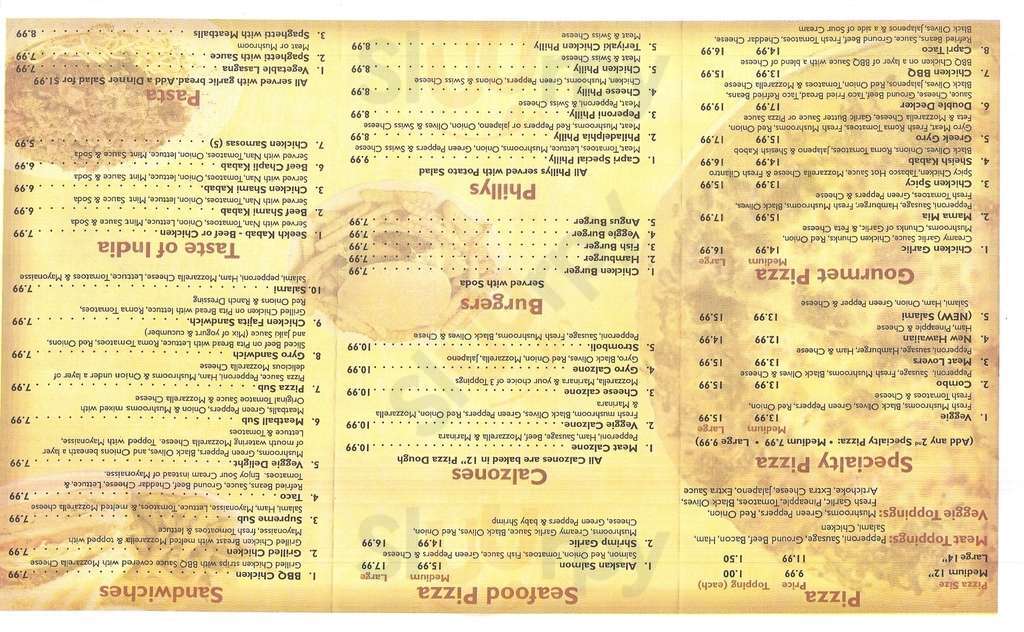 Pizza
Pizza Size Price Topping (each)
Medium 12" 9.99 1.00
Large 14" 11.99 1.50
Meat Toppings: Pepperoni, Sausage, Ground Beef, Bacon, Ham,
Salami, Chicken
Veggie Toppings: Mushrooms, Green Peppers, Red Onion,
Fresh Garlic, Pineapple, Tomatoes, Black Olives,
Artichoke, Extra Cheese, Jalapeno, Extra Sauce
Specialty Pizza
(Add any 2nd Specialty Pizza: • Medium 7.99 • Large 9.99)
Medium Large
1. Veggie 13.99 15.99
Fresh Mushrooms, Black Olives, Green Peppers, Red Onion,
Fresh Tomatoes & Cheese
2. Combo 13.99 15.99
Pepperoni, Sausage, Fresh Mushrooms, Black Olives & Cheese
3. Meat Lovers 13.99 15.99
Peperoni, Sausage, Hamburger, Ham & Cheese
4. New Hawaiian 12.99 14.99
Ham, Pineapple & Cheese
5. (NEW) Salami 13.99 15.99
Salami, Ham, Onion, Green Pepper & Cheese
Gourmet Pizza
Medium Large
1. Chicken Garlic 14.99 16.99
Creamy Garlic Sauce, Chicken Chunks, Red Onion,
Mushrooms, Chunks of Garlic & Feta Cheese
2. Mama Mia 15.99 17.99
Pepperoni, Sausage, Hamburger, Fresh Mushrooms, Black Olives,
Fresh Tomatoes, Green Peppers & Cheese
3. Chicken Spicy 13.99 15.99
Spicy Chicken, Tabasco Hot Sauce, Mozzarella Cheese & Fresh Cilantro
4. Sheish Kabab 14.99 16.99
Black Olives, Onion, Roma Tomatoes, Jalapeno & Sheish Kabob
5. Greek Gyro 15.99 17.99
Gyro Meat, Fresh Roma Tomatoes, Fresh Mushrooms, Red Onion,
Feta & Mozzarella Cheese, Garlic Butter Sauce or Pizza Sauce
6. Double Decker 17.99 19.99
Sauce, Cheese, Ground Beef, Taco Fried Bread, Taco Refried Beans,
Black Olives, Jalapenos, Red Onion, Tomatoes & Mozzarella Cheese
7. Chicken BBQ 13.99 15.99
BBQ Chicken on a layer of BBQ Sauce with a blend of Cheese
8. Capri Taco 14.99 16.99
Refried Beans, Sauce, Ground Beef, Fresh Tomatoes, Cheddar Cheese,
Black Olives, Jalapenos & a side of Sour Cream
Seafood Pizza
Medium Large
1. Alaskan Salmon 15.99 17.99
Salmon, Red Onion, Tomatoes, Fish Sauce, Green Peppers & Cheese
2. Shrimp Garlic 14.99 16.99
Mushrooms, Creamy Garlic Sauce, Black Olives, Red Onion,
Cheese, Green Peppers & Baby Shrimp
Calzones
All Calzones are baked in 12" Pizza Dough
1. Meat Calzone 10.99
Pepperoni, Ham, Sausage, Beef, Mozzarella & Marinara
2. Veggie Calzone 10.99
Fresh mushroom, Black Olives, Green Peppers, Red Onion, Mozzarella
& Marinara
3. Cheese calzone 10.99
Mozzarella, Marinara & your choice of 3 Toppings
4. Gyro Calzone 10.99
Gyro, Black Olives, Red Onion, Mozzarella, Jalapeno
5. Stromboli 10.99
Pepperoni, Sausage, Fresh Mushrooms, Black Olives & Cheese
Burgers
Served with Soda
1. Chicken Burger 7.99
2. Hamburger 7.99
3. Fish Burger 7.99
4. Veggie Burger 7.99
5. Angus Burger 7.99
Phillys
All Phillys served with Potato Salad
1. Capri Special Philly 9.99
Meat, Tomatoes, Lettuce, Mushrooms, Onion, Green Peppers & Swiss Cheese
2. Philadelphia Philly 8.99
Meat, Mushrooms, Red Peppers or Jalapeno, Onion, Olives & Swiss Cheese
3. Peperoni Philly 8.99
Meat, Pepperoni, Swiss Cheese
4. Cheese Philly 8.99
Chicken, Mushrooms, Onion, Green Peppers, Onions & Swiss Cheese
5. Chicken Philly 8.99
Meat & Swiss Cheese
5. Teriyaki Chicken Philly 8.99
Meat & Swiss Cheese
Sandwiches
1. BBQ Chicken 7.99
Grilled Chicken strips with BBQ Sauce covered with Mozzarella Cheese
2. Grilled Chicken 7.99
Grilled Chicken Breast with melted Mozzarella & topped with
Mayonaise, Fresh Tomatoes & lettuce
3. Supreme Sub 7.99
Salami, Ham, Mayonaise, Lettuce, Tomatoes, & melted Mozzarella cheese
4. Taco 7.99
Refried Beans, Sauce, Ground Beef, Cheddar Cheese, Lettuce, &
Tomatoes. Enjoy Sour Cream instead of Mayonaisse.
5. Veggie Delight 7.99
Mushrooms, Green Peppers, Black Olives, and Onions beneath a layer
of mouth watering Mozzarella Cheese. Topped with Mayonaise,
Lettuce & Tomatoes
6. Meatball Sub 7.99
Meatballs, Green Peppers, Onion & Mushrooms mixed with
Original Tomatoe Sauce & Mozzarella Cheese
7. Pizza Sub 7.99
Pizza Sauce, Pepperoni, Ham, Mushrooms & Onion under a layer of
delicious Mozzarella Cheese
8. Gyro Sandwich 7.99
Sliced Beef on Pita Bread with Lettuce, Roma Tomatoes, Red Onions,
and Jaiki Sauce (Mix of yogurt & cucumber)
9. Chicken Fajita Sandwich 7.99
Grilled Chicken on Pita Bread with Lettuce, Roma Tomatoes,
Red Onions & Ranch Dressing
10. Salami 7.99
Salami, Pepperoni, Ham, Mozzarella Cheese, Lettuce, Tomatoes & Mayonaisse
Taste of India
1. Seekh Kabab - Beef or Chicken 7.99
Served with Nan, Tomatoes, Onion, lettuce, Mint Sauce & Soda
2. Beef Shami Kabab 6.99
Served with Nan, Tomatoes, Onion, lettuce, Mint Sauce & Soda
3. Chicken Shami Kabab 6.99
Served with Nan, Tomatoes, Onion, lettuce, Mint Sauce & Soda
6. Beef Chapli Kabab 6.99
Served with Nan, Tomatoes, Onion, lettuce, Mint Sauce & Soda
7. Chicken Samosas (5) 5.99
Pasta
All served with garlic bread. Add a Dinner Salad for $1.99
1. Vegetable Lasagna 7.99
2. Spaghetti with Sauce 7.99
Meat or Mushroom
3. Spaghetti with Meatballs 8.99